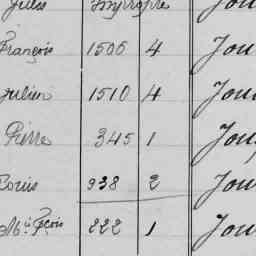 Jules Impropre Jou
François 1506 4 Jou
Julien 1510 4 Jou
Pierre 345 1 Jou
Louis 938 2 Jou
222 1 Jou